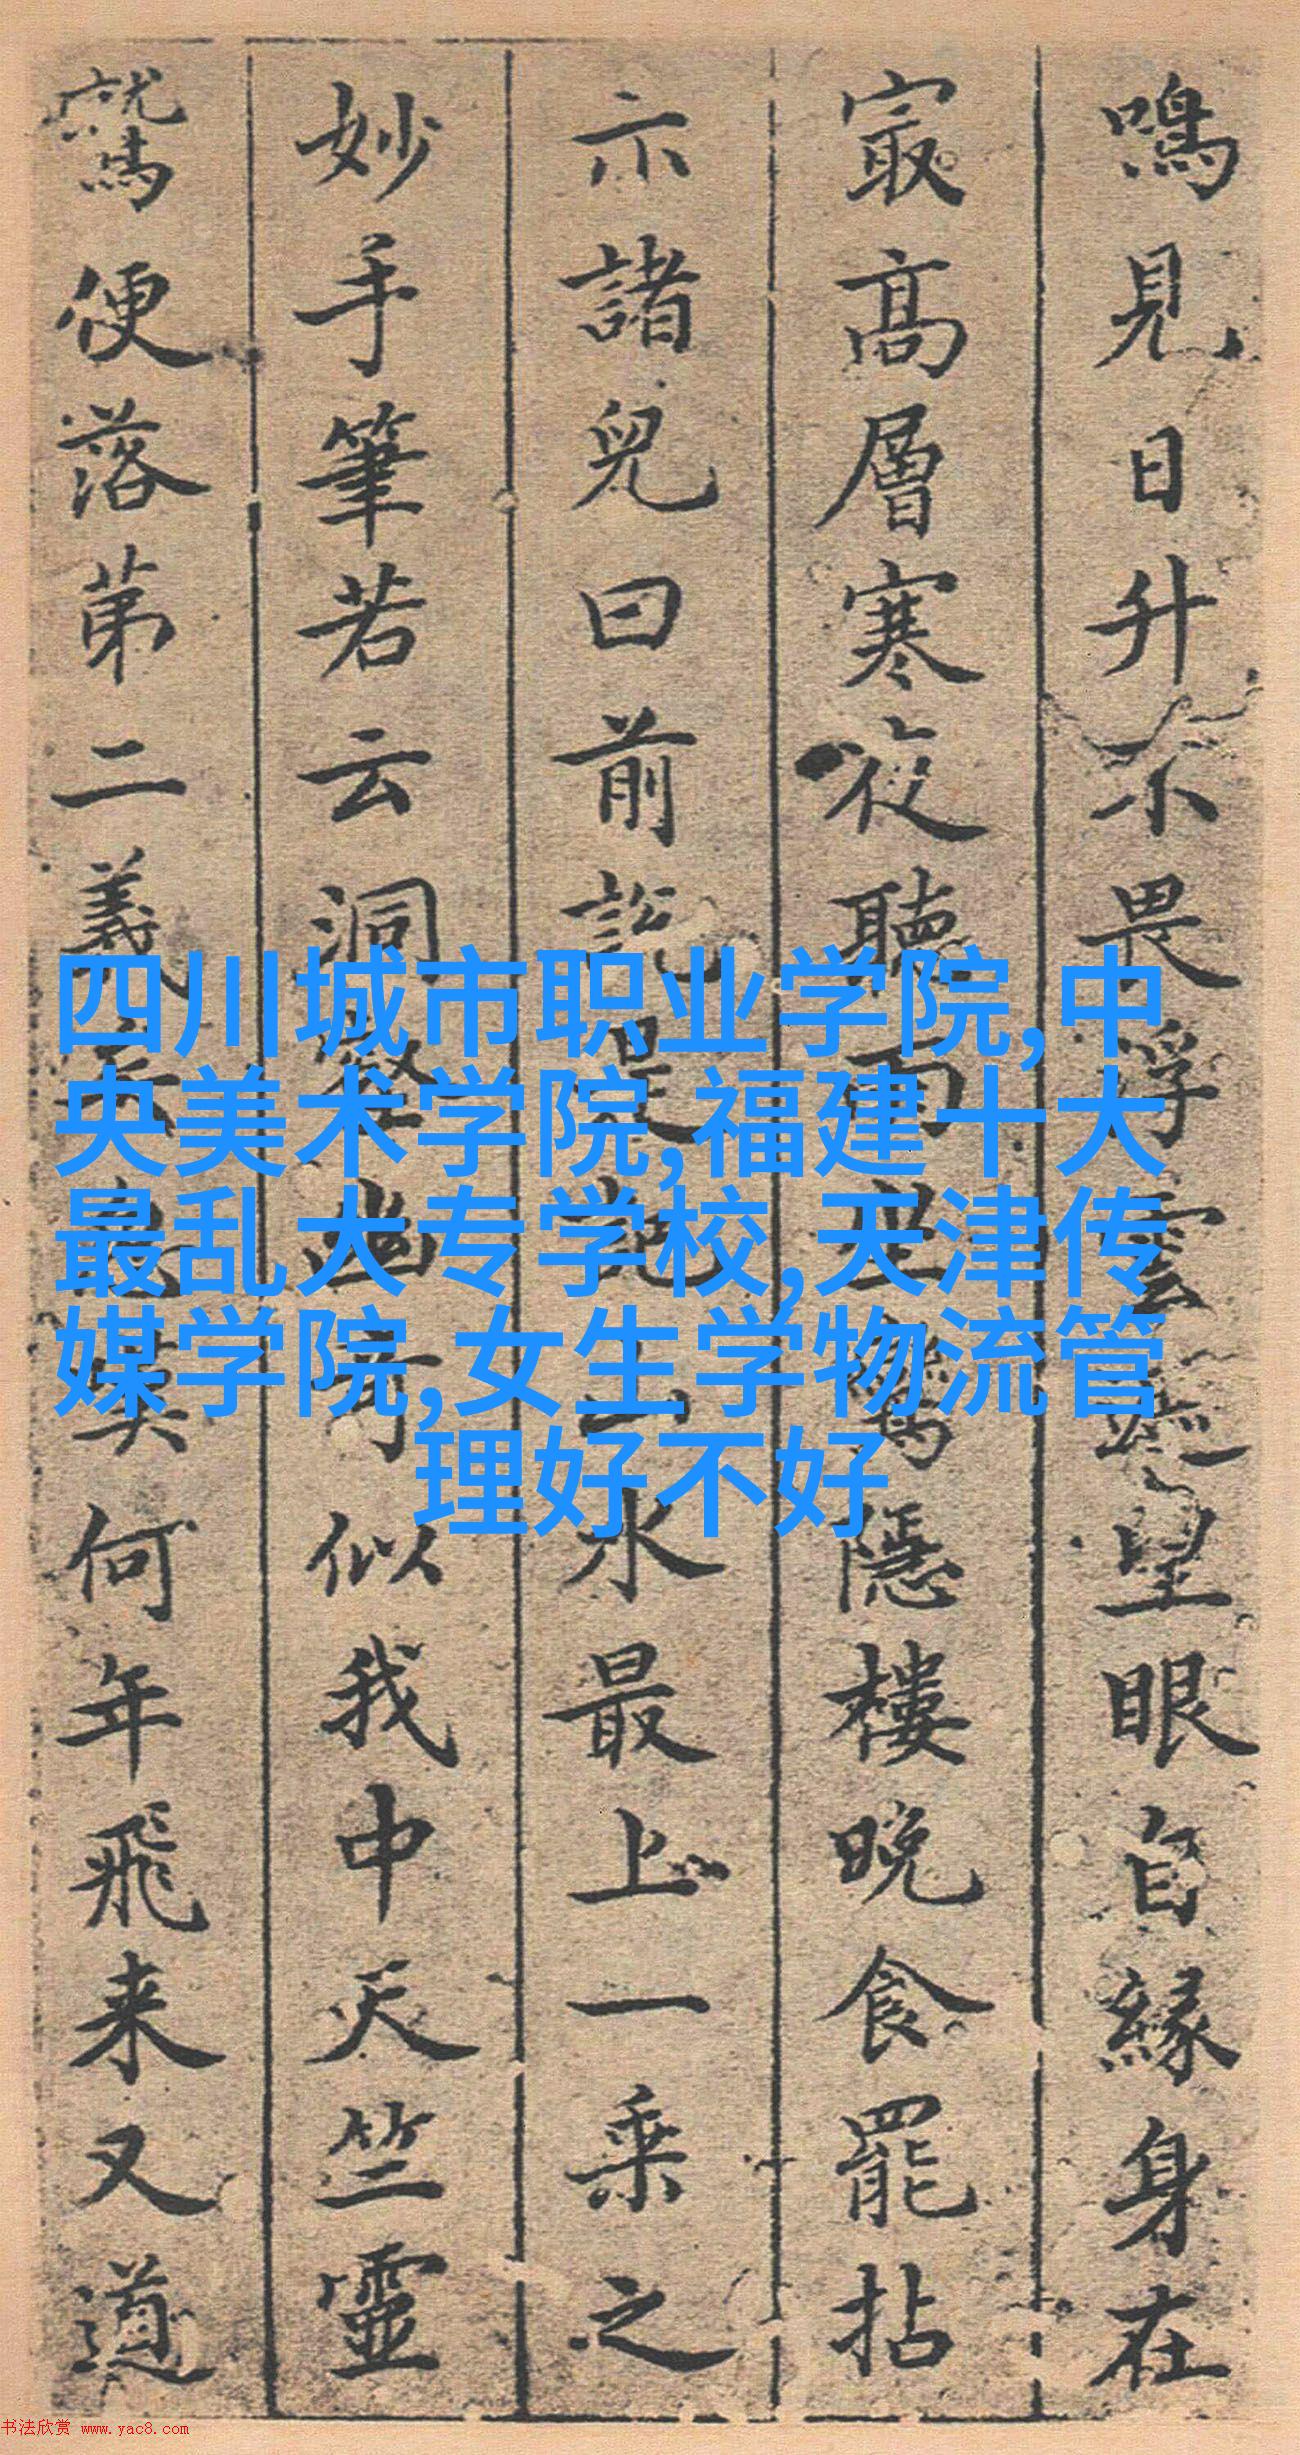 鳴見日升不畏浮雲遮望眼自緣身在
㝡高層寒夜聽雨坐隱樓晚食罷拈
示諸兒曰前說是說山水最上一乘之
妙手筆若云洞壑幽奇似我中天竺靈
鷲便落苐二義何年飛来又道
四川城市职业学院,中
央美术学院,福建十大
最乱大专学校,天津传
媒学院,女生学物流管
理好不好
书法欣赏 www.yac8.com